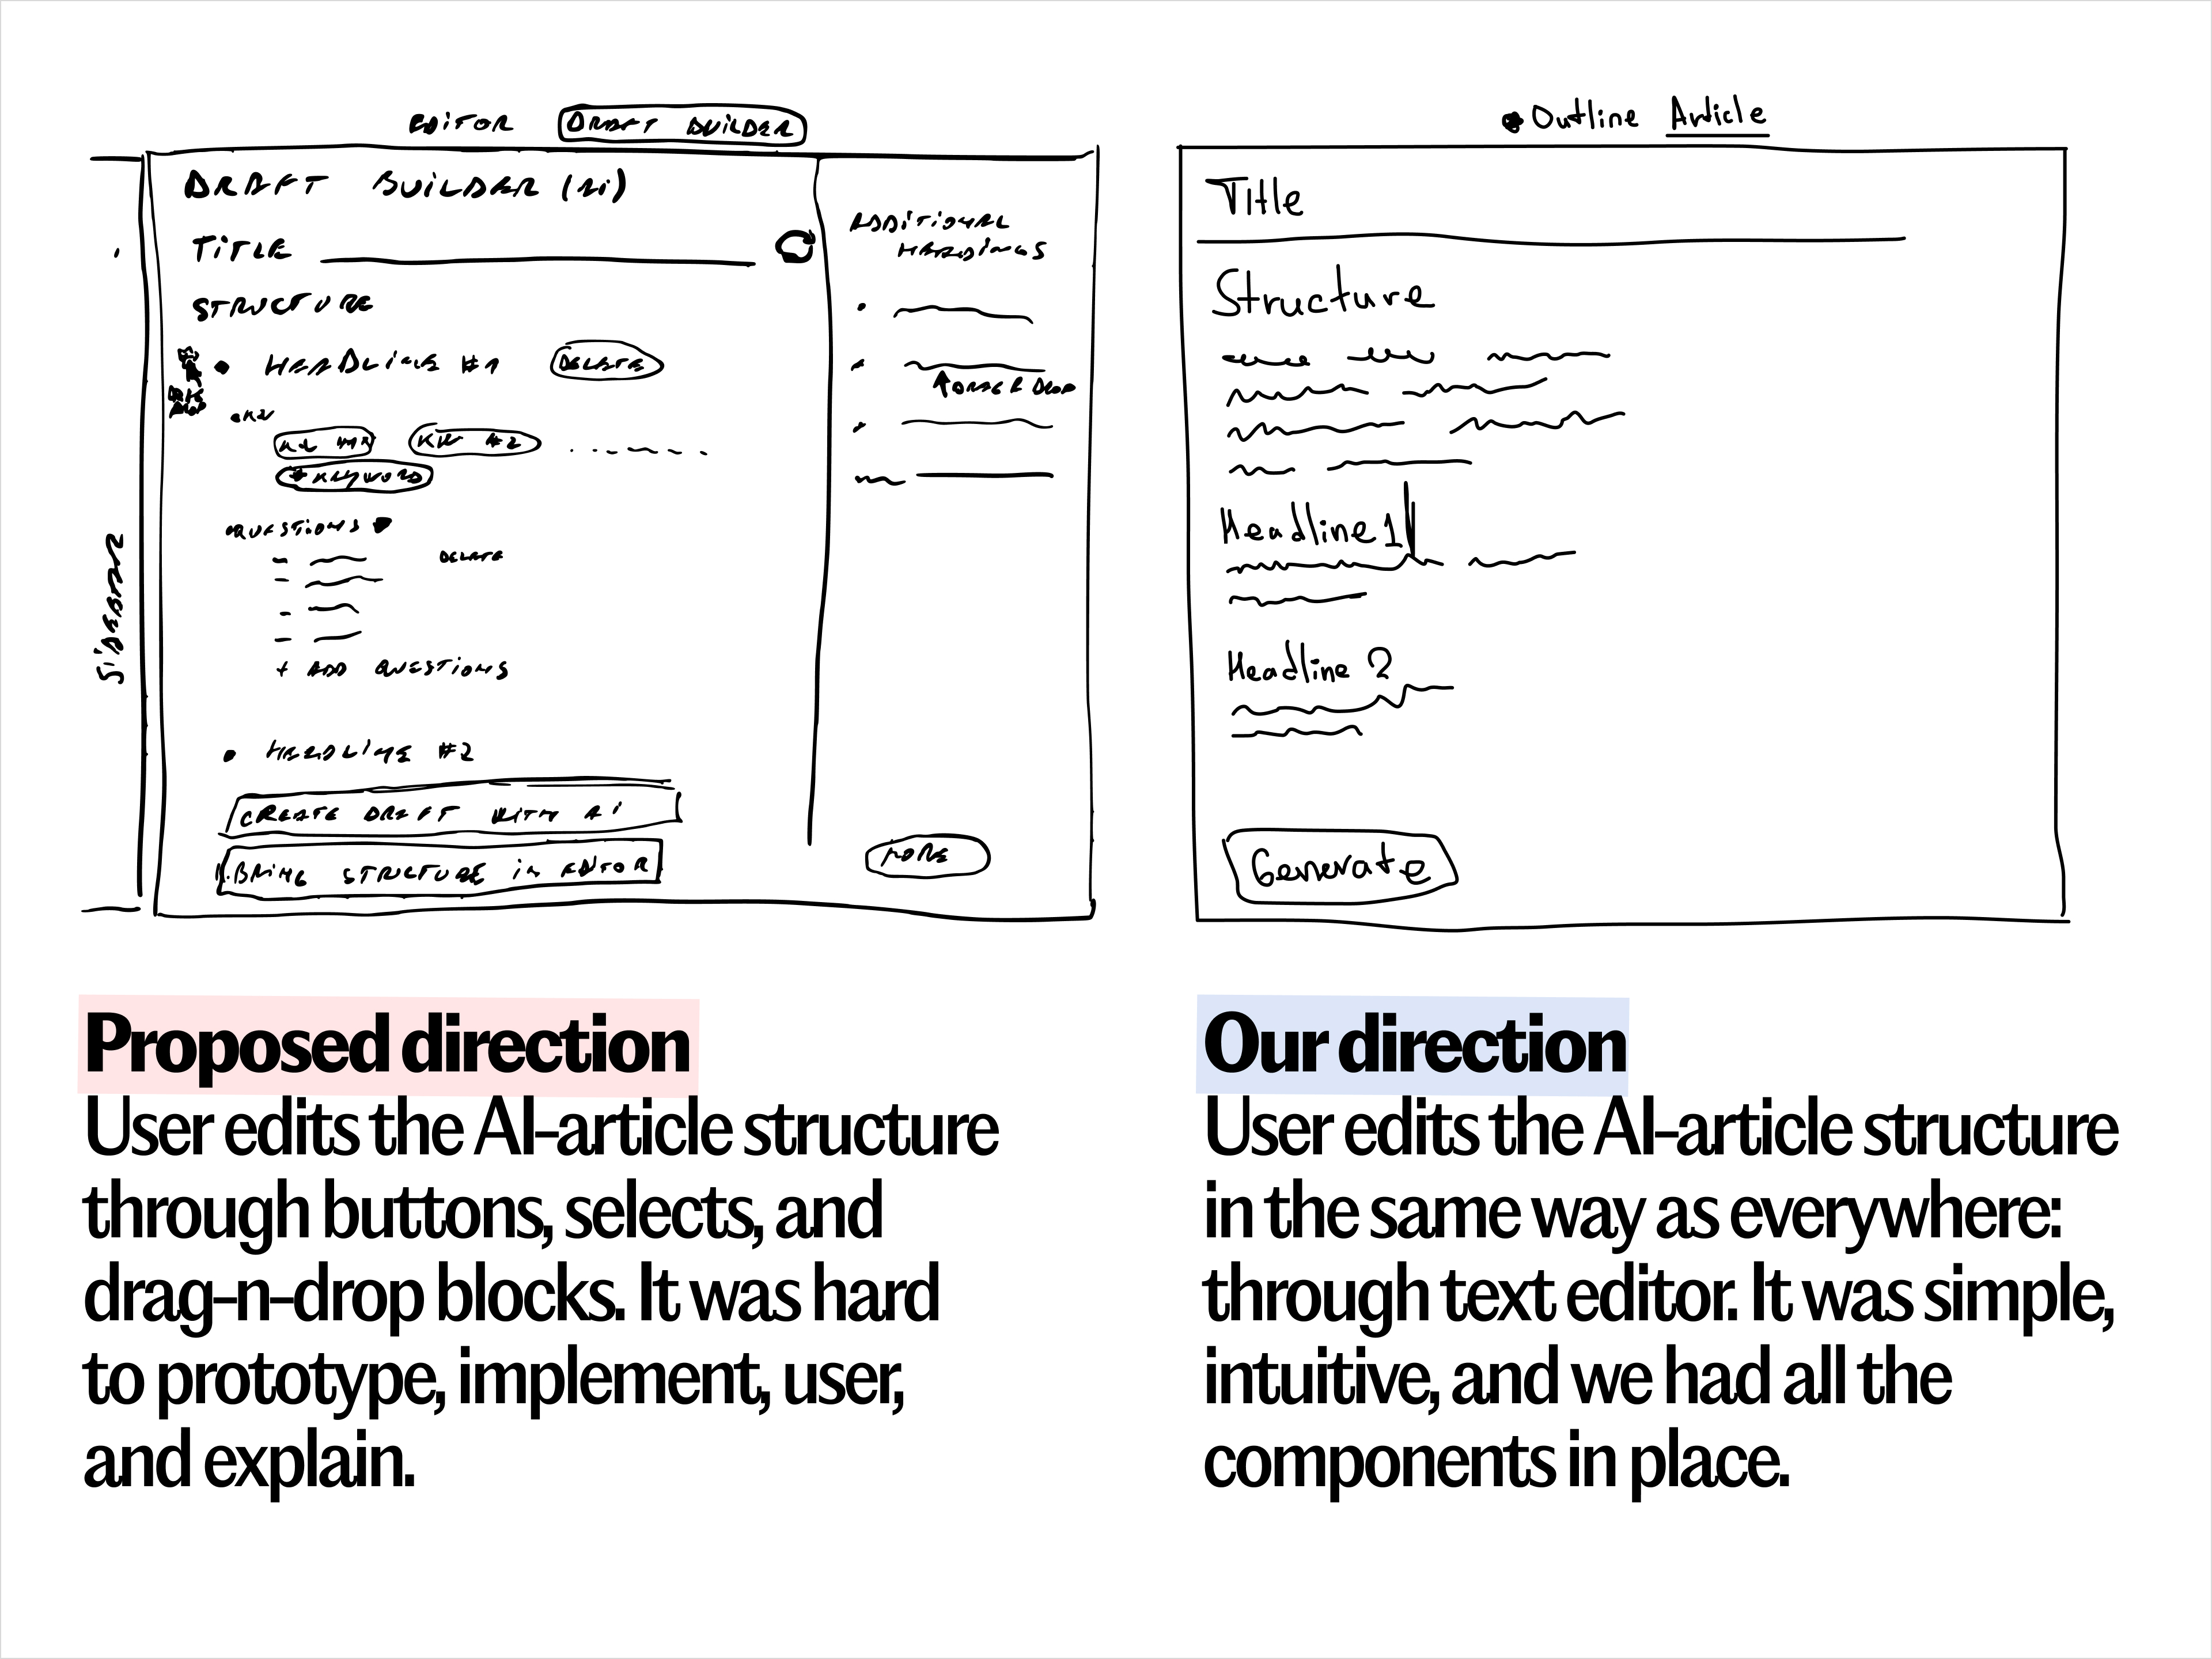 EDITOR DRAFT BUILDER
DRAFT BUILDER (Ai)
TITLE
STRUCTURE
HEADLINE #1 DELETE
DRAG DROP
KW #2
+ KEYWORD
QUESTIONS
DELETE
+ ADD QUESTIONS
HEADLINE #2
CREATE DRAFT WITH Ai
BRING STRUCTURE in EDITOR
SiDEBAR
ADDITIONAL
HEADINGS
DRAG & DROP
MORE
Outline Article
Title
Structure
Headline 1
Headline 2
Generate
Proposed direction
User edits the AI-article structure
through buttons, selects, and
drag-n-drop blocks. It was hard
to prototype, implement, user,
and explain.
Our direction
User edits the AI-article structure
in the same way as everywhere:
through text editor. It was simple,
intuitive, and we had all the
components in place.